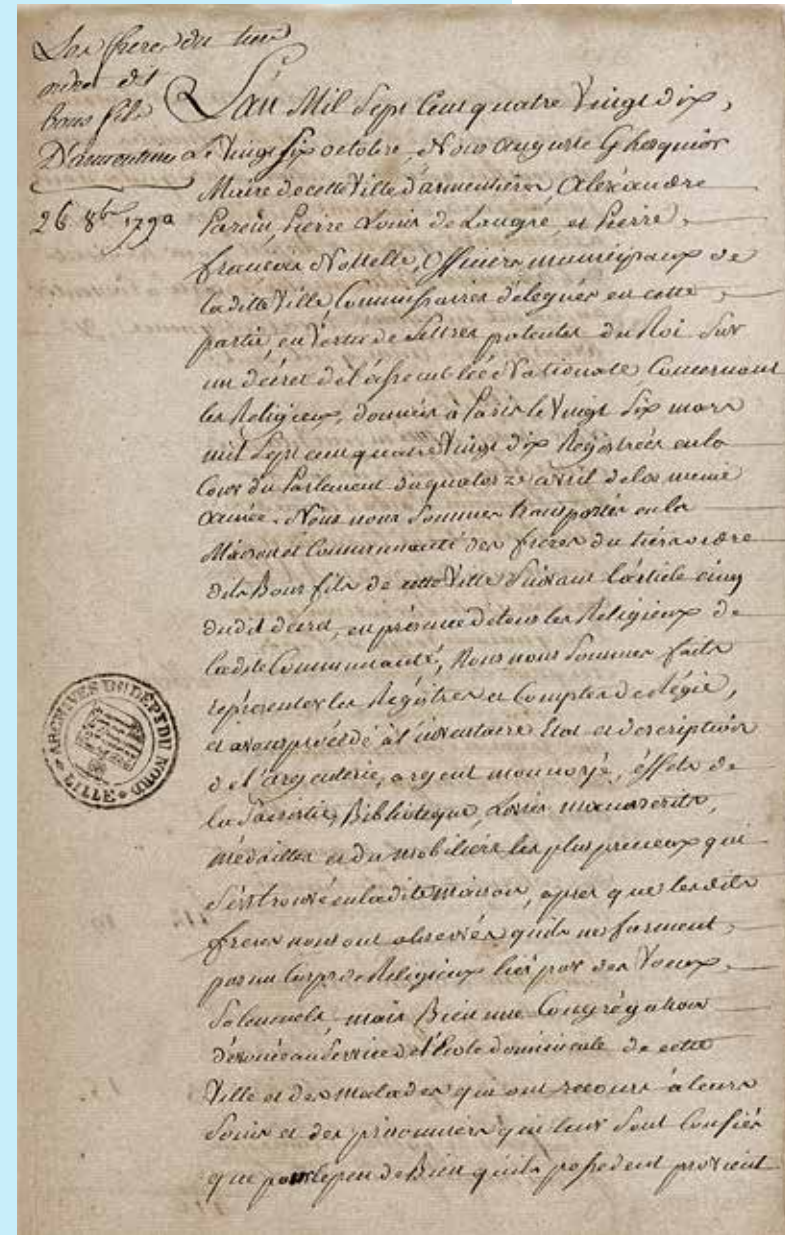 Les freres du tiers
ordre des
bons fils
D'armentieres
26 8bre 1790
L'an Mil Sept Cent quatre Vingt dix,
Le Vingt six octobre, Nous auguste Ghesquier
Maire de cette Ville d'armentieres, Alexandre
Parein, Pierre Louis de Laugre, et Pierre
francois Nottelle, Officiers municipaux de
laditte Ville, Commissaires délegués en cette
partie, en Vertu de Lettres patentes du Roi Sur
un décret de l'assemblée Nationale Concernant
les Religieux, données à Paris le Vingt Six mars
mil Sept cent quatre Vingt dix Registrées en la
Cour du Parlement du quatorze avril de la meme
année. Nous nous Sommes transportés en la
Maison et Communauté des freres du tiers ordre
dits Bons fils de cette Ville Suivant l'article cinq
dudit décret, en présence de tous les Religieux de
ladite Communauté, Nous nous Sommes faits
représenter les Régistres et Comptes de Régie,
et avons procédé à l'inventaire Etat et description
de l'argenterie, argent monnoyé, éffets de
la Sacristie, Bibliotéque, Livres manuscrits,
médailles et du mobilière les plus precieux qui
S'est trouvé en ladite maison, apres que lesdits
freres nous ont observés qu'ils ne forment
pas un Corps de Religieux liés par des Voeux
Solemnels, mais Bien une Congrégation
dévouée au Service de l'Ecole dominicale de cette
Ville et des malades qui ont recours à leurs
Soins et des prisonniers qui leur Sont Confiés
que pour le peu de Bien qu'ils possedent provient
ARCHIVES DU DÉPT DU NORD
LILLE